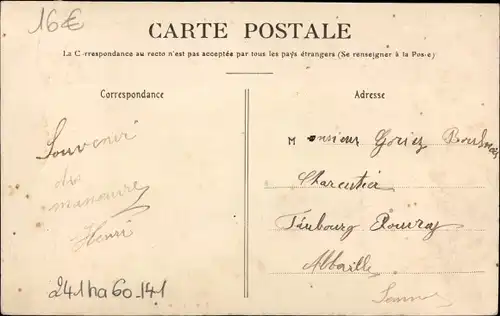 16€
CARTE POSTALE
La Correspondance au recto n'est pas acceptée par tous les pays étrangers (Se renseigner à la Poste)
Correspondance
Adresse
Souvenir
du
manouvre
Henri
Monsieur Goriez
Charcutier
Fbourg Rouvroy
Abbeville
Somme
241 ha 60-141